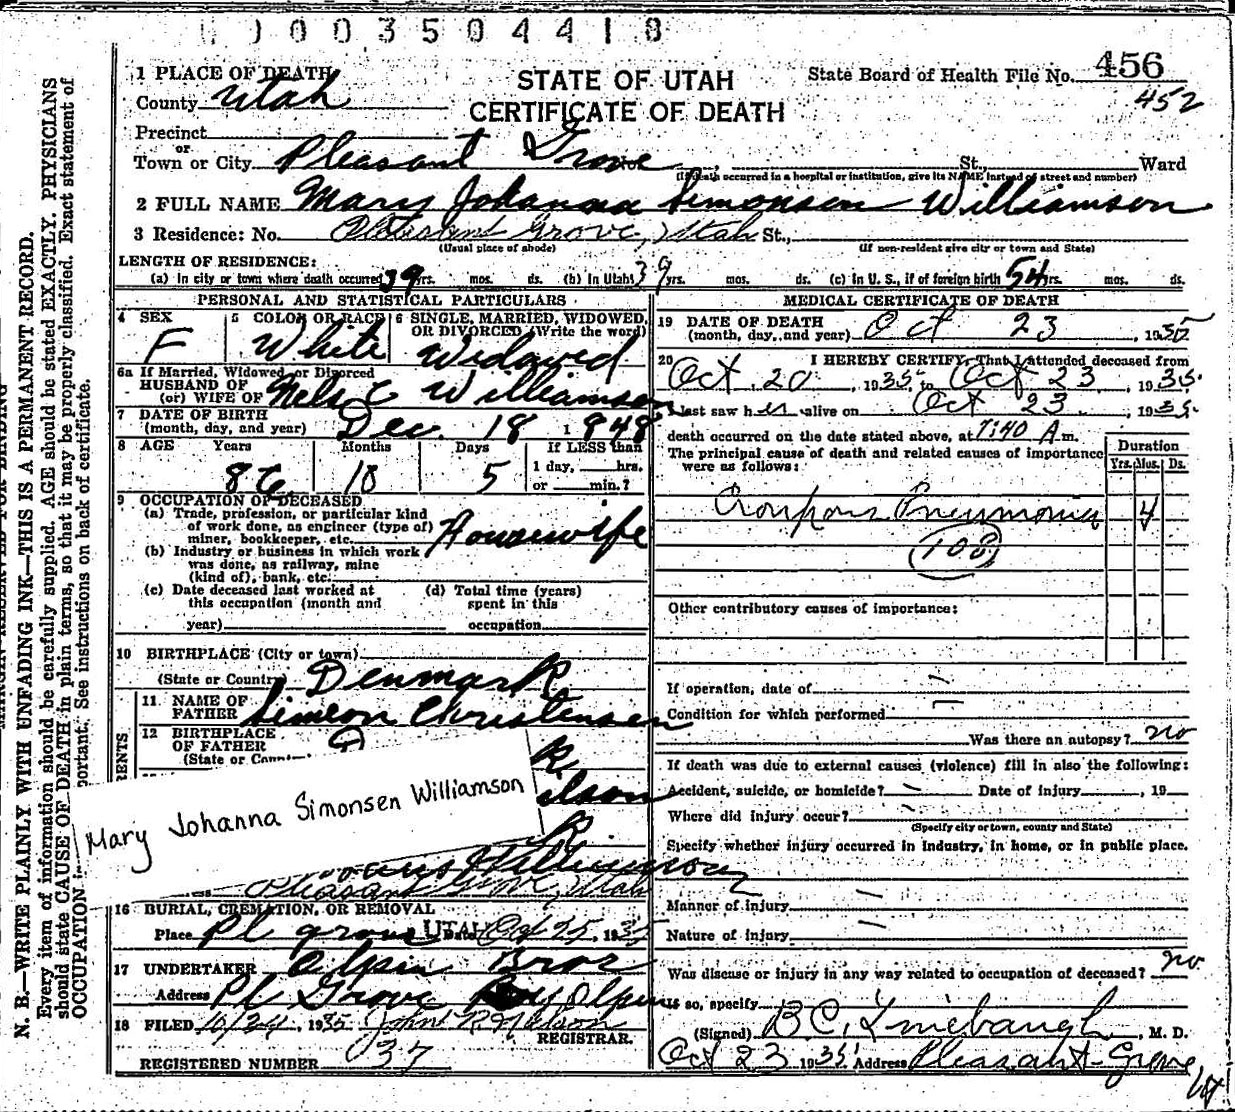 0 0 3 5 0 4 4 1 8
1 PLACE OF DEATH
County Utah
STATE OF UTAH
CERTIFICATE OF DEATH
State Board of Health File No. 456
452
Precinct
or
Town or City Pleasant Grove St., Ward
(If death occurred in a hospital or institution, give its NAME instead of street and number)
2 FULL NAME Mary Johanna Simonsen Williamson
3 Residence: No. Pleasant Grove, Utah St.,
(Usual place of abode) (If non-resident give city or town and State)
LENGTH OF RESIDENCE:
(a) In city or town where death occurred 39 yrs. mos. ds. (b) In Utah 39 yrs. mos. ds. (c) In U. S., if of foreign birth 54 yrs. mos. ds.
PERSONAL AND STATISTICAL PARTICULARS
4 SEX
F
5 COLOR OR RACE
White
6 SINGLE, MARRIED, WIDOWED,
OR DIVORCED (Write the word)
Widowed
6a If Married, Widowed or Divorced
HUSBAND OF
(or) WIFE OF Nels C Williamson
7 DATE OF BIRTH
(month, day, and year) Dec. 18 1848
8 AGE Years Months Days If LESS than
86 10 5 1 day, hrs.
or min.?
9 OCCUPATION OF DECEASED
(a) Trade, profession, or particular kind
of work done, as engineer (type of)
miner, bookkeeper, etc. Housewife
(b) Industry or business in which work
was done, as railway, mine
(kind of), bank, etc.
(c) Date deceased last worked at
this occupation (month and
year)
(d) Total time (years)
spent in this
occupation
10 BIRTHPLACE (City or town)
(State or Country) Denmark
11 NAME OF
FATHER Simeon Christensen
12 BIRTHPLACE
OF FATHER
(State or Country)
Mary Johanna Simonsen Williamson
Pleasant Grove, Utah
16 BURIAL, CREMATION, OR REMOVAL
Place Pl grove UTAH Date Oct 25, 1935
17 UNDERTAKER Olpin Bros
Address Pl Grove Olpin
18 FILED 10/24, 1935 John R. Nelson
REGISTRAR.
REGISTERED NUMBER 37
MEDICAL CERTIFICATE OF DEATH
19 DATE OF DEATH
(month, day, and year) Oct 23, 1935
20 I HEREBY CERTIFY, That I attended deceased from
Oct 20, 1935 to Oct 23, 1935
I last saw her alive on Oct 23, 1935
death occurred on the date stated above, at 7:40 A m.
The principal cause of death and related causes of importance
were as follows:
Duration
Yrs. Mos. Ds.
Croupous Pneumonia 4
108
Other contributory causes of importance:
If operation, date of
Condition for which performed
Was there an autopsy? no
If death was due to external causes (violence) fill in also the following:
Accident, suicide, or homicide? Date of injury , 19
Where did injury occur?
(Specify city or town, county and State)
Specify whether injury occurred in industry, in home, or in public place.
Manner of injury
Nature of injury
Was disease or injury in any way related to occupation of deceased? no
If so, specify
(Signed) B C Linebaugh, M. D.
Oct 23 1935 Address Pleasant Grove
Ut
N. B.—WRITE PLAINLY WITH UNFADING INK—THIS IS A PERMANENT RECORD.
Every item of information should be carefully supplied. AGE should be stated EXACTLY. PHYSICIANS
should state CAUSE OF DEATH in plain terms, so that it may be properly classified. Exact statement of
OCCUPATION See instructions on back of certificate.